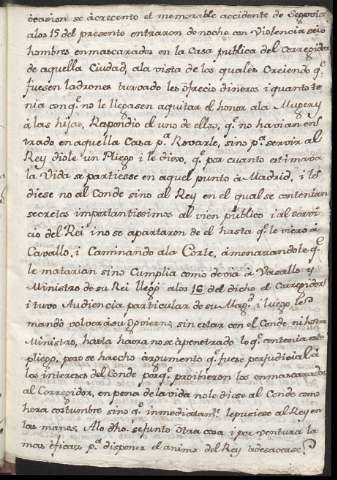 ocasion se acrecento el memorable accidente de Segovia
alos 15 del presente entraron de noche con Violencia seis
hombres enmascarados en la Casa publica del Corregidor
de aquella Ciudad, ala vista de los quales Creiendo q.^e
fuesen ladrones turbado les ofrecio dineros i quanto te
nia con q.^e no le llegasen aquitar el honor ala Muger y
à las hijas, Respondio el uno de ellos, q.^e no havian en
trado en aquella Casa p.^a Rovarle, sino p.^a servir al
Rey diole un Pliego i le dixo, q.^e por quanto estimava
la Vida se partiesse en aquel punto à Madrid, i les
diese no al Conde sino al Rey en el qual se contenian
secretos importantissimos al vien publico i al servi
cio del Rei i no se apartaron de el hasta q.^e le vieron à
Cavallo, i Caminando ala Corte, amenazandole q.^e
le matarian sino Cumplia como devia à Vasallo y
Ministro de su Rei llegò alos 16 del dicho el Corregidor
i tuvo Audiencia particular de su Mag.^d i luego le
mandò volver à su Govierno, sin estar con el Conde ni
Ministro, hasta haora no se a penetrado lo q.^e contenia el
pliego, pero se ha echo argumento q.^e fuese perjudicial à
los interesses del Conde porq.^e prohivieron los enmascarados
al Corregidor, en pena de la vida no le diese al Conde como
hera costumbre sino q.^e inmediatam.^te le pusiese al Rey en
las manos. A lo dho. se junto otra cosa i por ventura la
mas eficaz p.^a disponer el animo del Rey